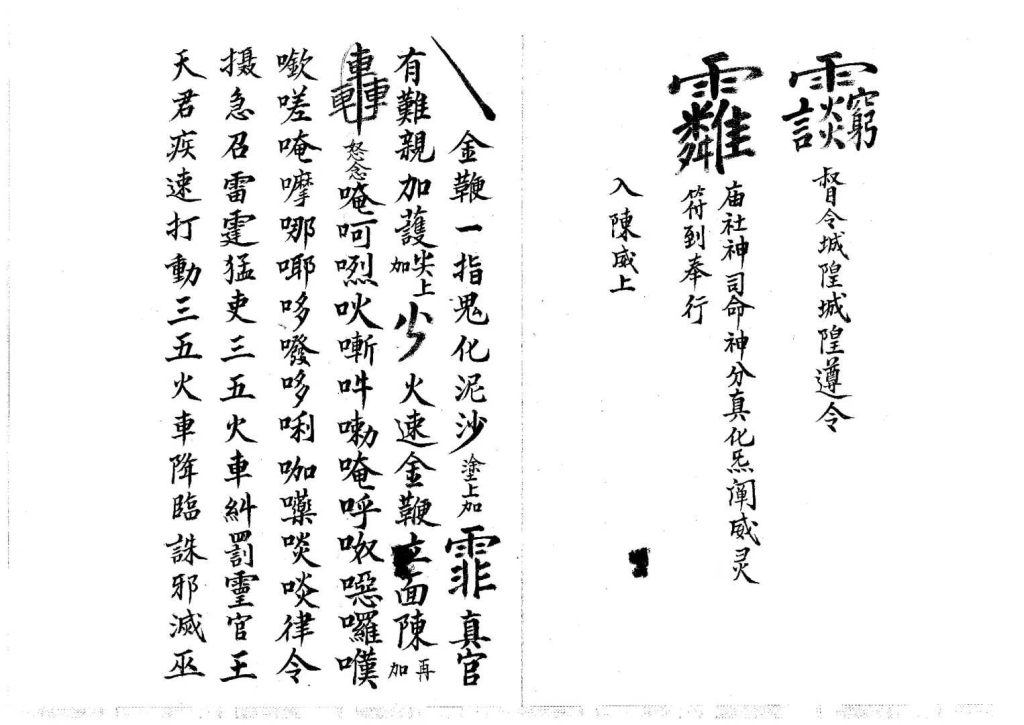 督令城隍城隍遵令
庙社神司命神分真化炁阐威灵
符到奉行
入陳威上
金鞭一指鬼化泥沙塗上加霏真官
有難親加護尖上加少火速金鞭立面陳再加
怒念唵呵㗭吙嘶吽嘞唵呼呶噁囉嘆
嘋嗟唵嚤哪哪哆噯哆唎咖嚛啖啖律令
摄急召雷霆猛吏三五火車糾罰靈官王
天君疾速打動三五火車降臨誅邪滅巫